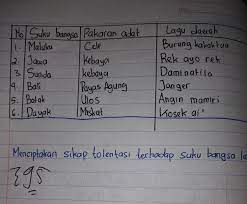 No Suku bangsa Pakaian adat Lagu daerah
1. Maluku Cele Burung kakaktua
2. Jawa Kebaya Rek ayo rek
3. Sunda kebaya Daminatila
4. Bali Payas Agung Janger
5. Batak Ulos Angin mamiri
6. Dayak Kosek
Menciptakan sikap tolentasi terhadap suku bangsa
395